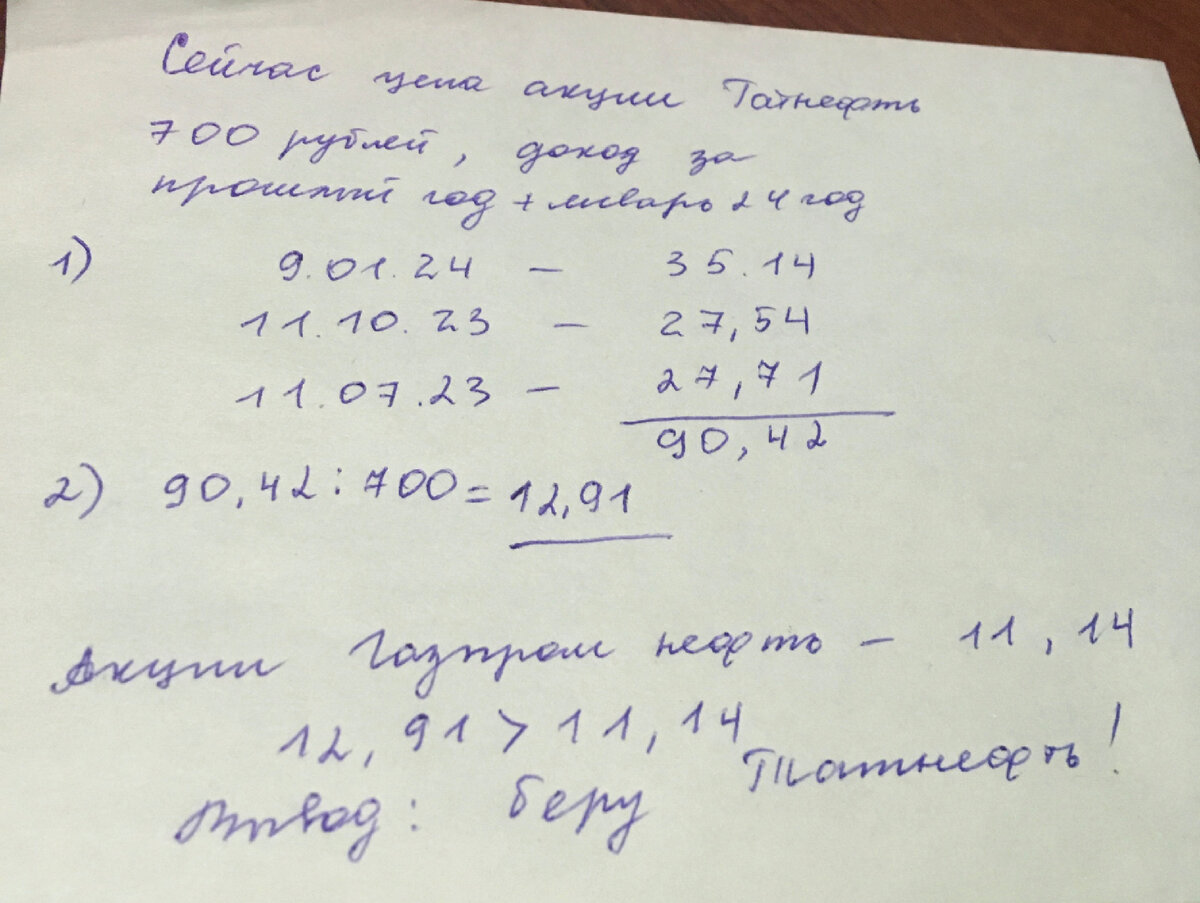 Сейчас цена акции Татнефть
700 рублей, доход за
прошлый год + январь 24 год
1) 9.01.24 — 35.14
11.10.23 — 27,54
11.07.23 — 27,71
90,42
2) 90,42 : 700 = 12,91
Акции Газпром нефть — 11,14
12,91 > 11,14
Вывод: беру Татнефть!